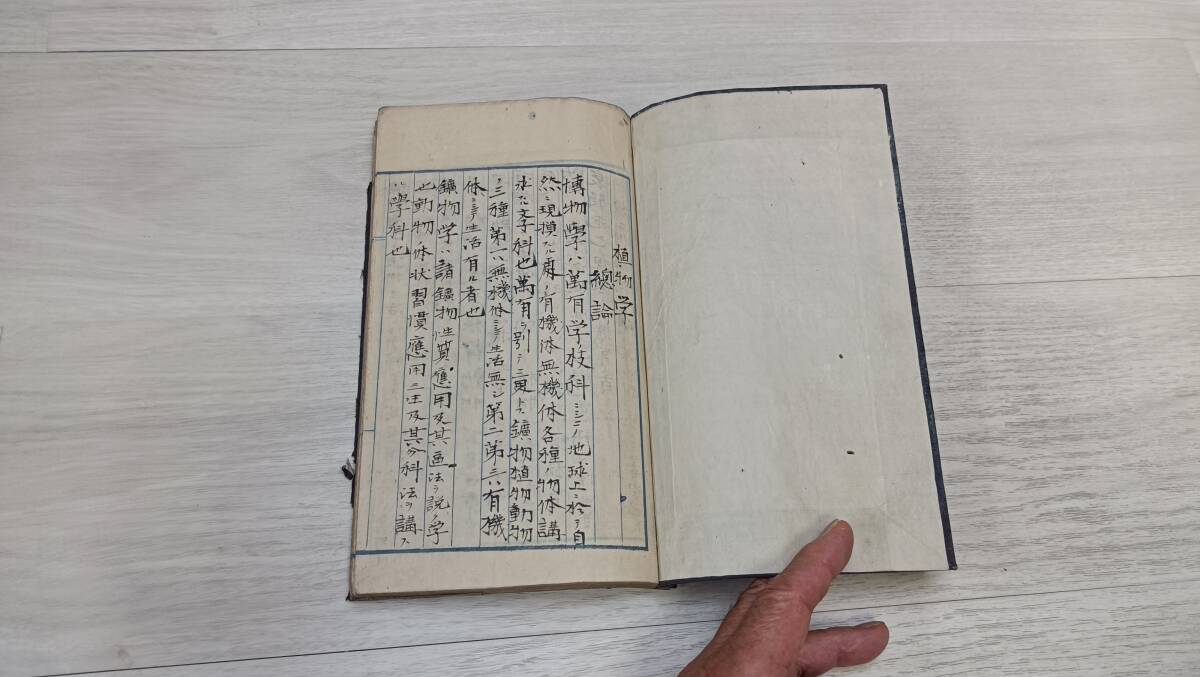 植物学
總論
博物學ハ萬有学ノ枝科ニシテ地球上ニ於テ自
然ニ現摸スル處ノ有機体無機体各種ノ物体講
求スル文科也萬有ヲ別テ三更トス鑛物植物動物
ノ三種第一ハ無機体ニシテ生活無シ第二第三ハ有機
体ニシテ生活有ル者也
鑛物学ハ諸鑛物ノ性質應用及其画法ヲ説ノ学
也動物ノ体状習慣應用ニ注及其分科法ヲ講ス
ハ學科也